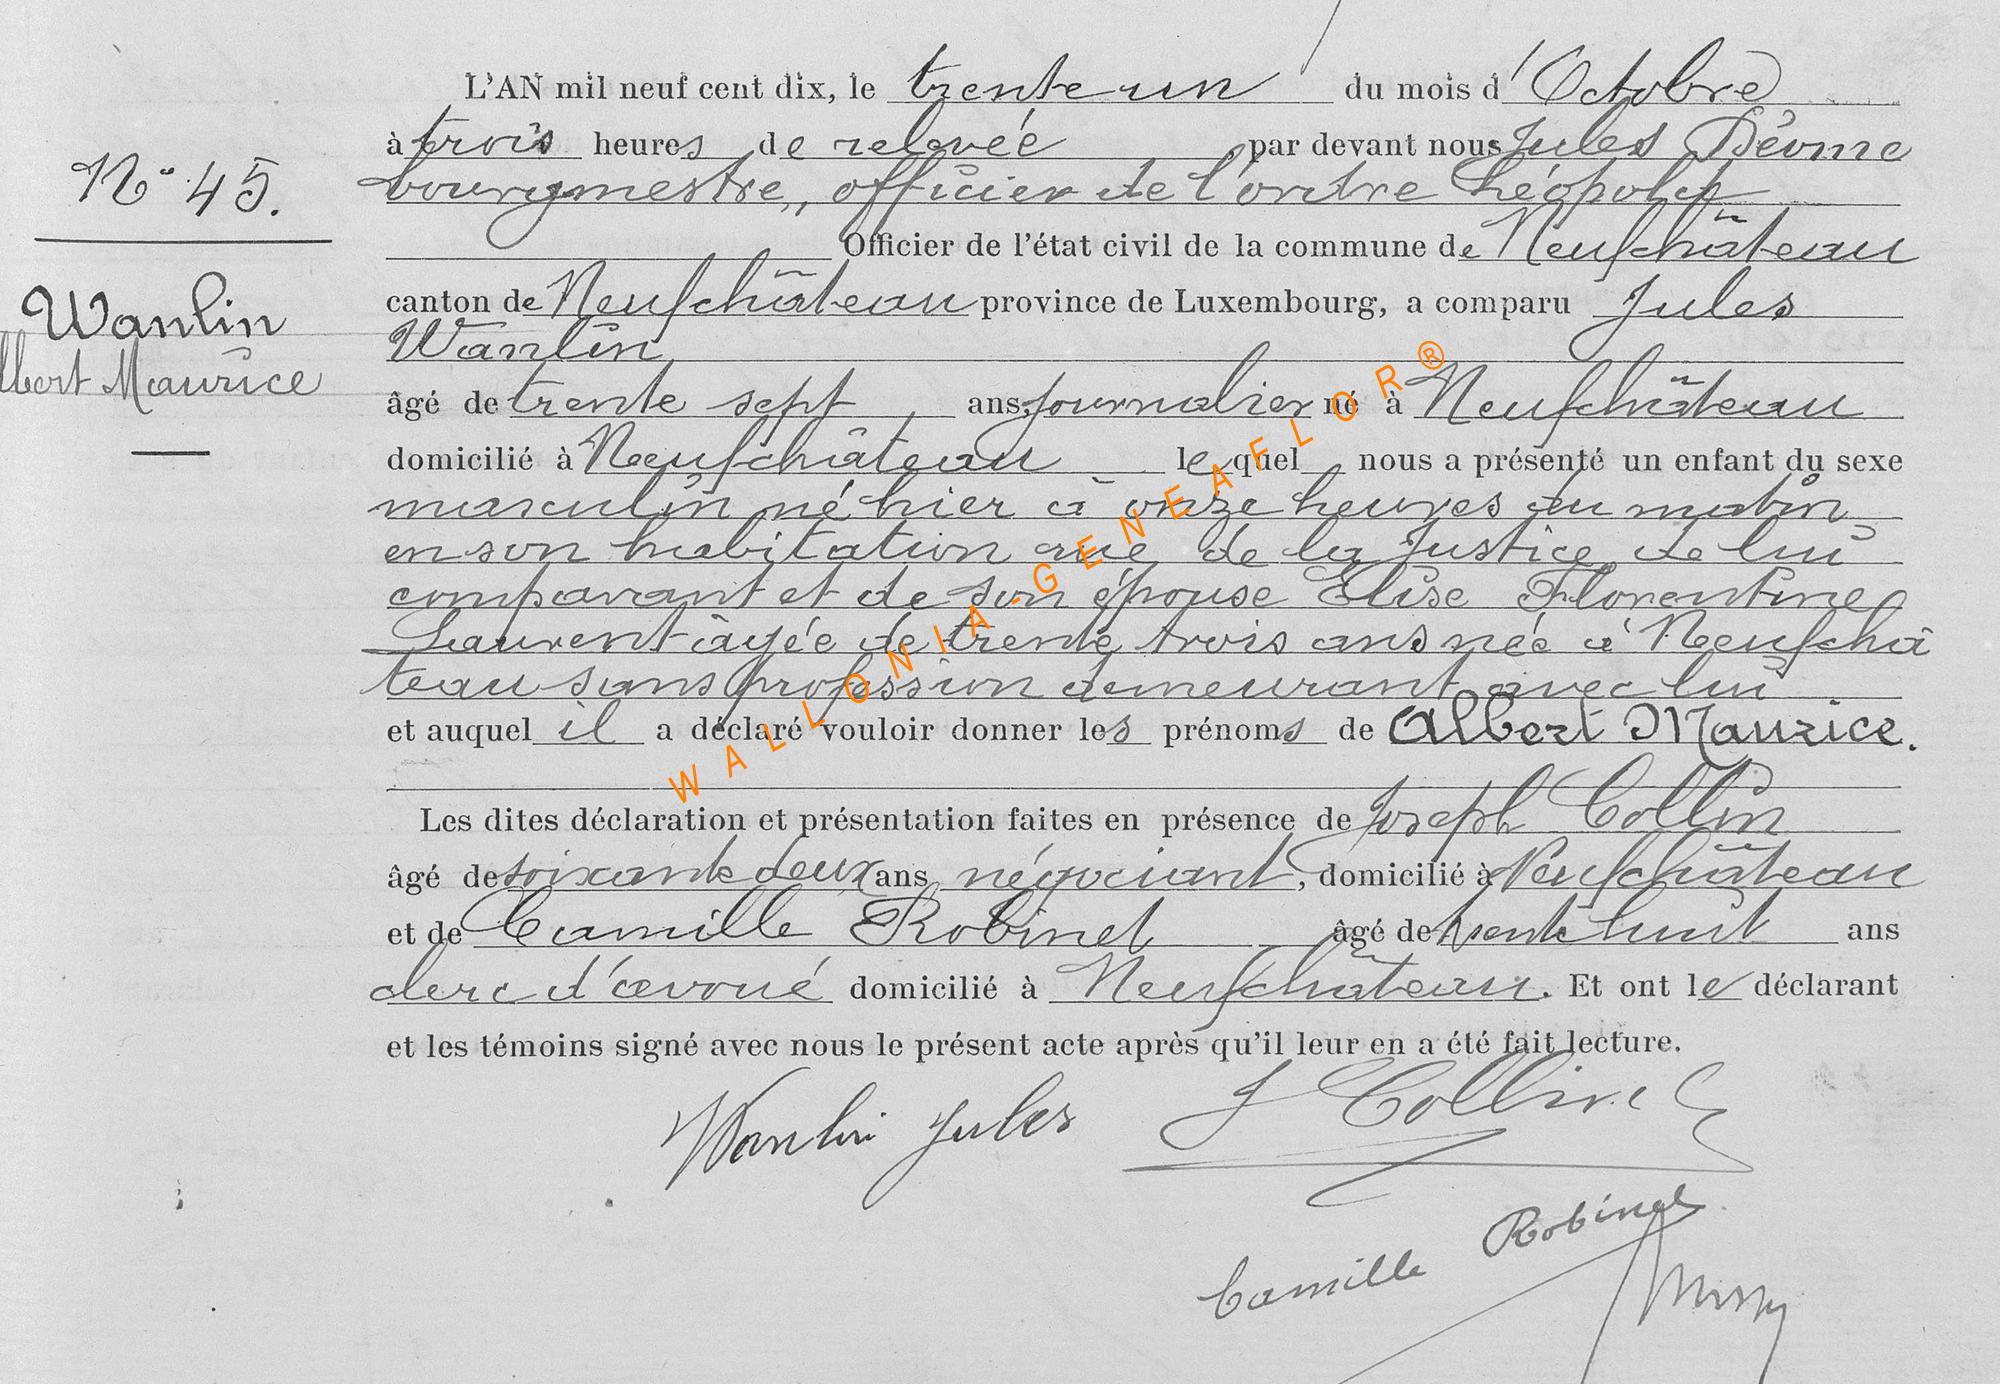 L'AN mil neuf cent dix, le trente un du mois d'Octobre
à trois heures de relevée par devant nous Jules
bourgmestre, officier de l'ordre Léopold
Officier de l'état civil de la commune de Neufchâteau
canton de Neufchâteau province de Luxembourg, a comparu Jules
Wanlin
âgé de trente sept ans, journalier né à Neufchâteau
domicilié à Neufchâteau lequel nous a présenté un enfant du sexe
masculin né hier à onze heures du matin
en son habitation rue de la Justice de lui
comparant et de son épouse Elise Florentine
Laurent âgée de trente trois ans née à Neufchâ
teau sans profession demeurant avec lui
et auquel il a déclaré vouloir donner les prénoms de Albert Maurice.
Les dites déclaration et présentation faites en présence de Joseph Collin
âgé de soixante deux ans négociant, domicilié à Neufchâteau
et de Camille Robinet âgé de trente huit ans
clerc d'avoué domicilié à Neufchâteau. Et ont le déclarant
et les témoins signé avec nous le présent acte après qu'il leur en a été fait lecture.
N° 45.
Wanlin
lbert Maurice
Wanlin Jules
J Collin
Camille Robinet
WALLONIA-GENEAFLOR®